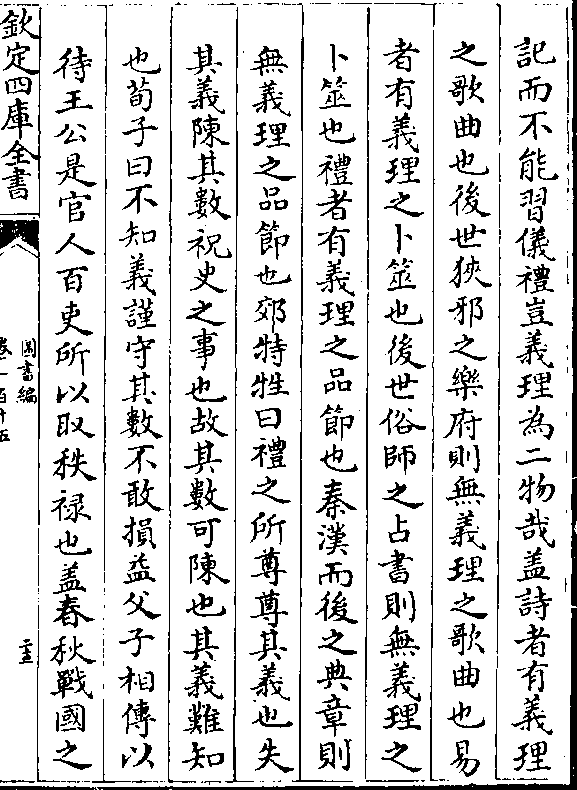 記而不能習儀禮豈義理為二物哉盖詩者有義理
之歌曲也後世狹邪之樂府則無義理之歌曲也易
者有義理之卜筮也後世俗師之占書則無義理之
卜筮也禮者有義理之品節也秦漢而後之典章則
無義理之品節也郊特牲曰禮之所尊尊其義也失
其義陳其數祝史之事也故其數可陳也其義難知
也荀子曰不知義謹守其數不敢損益父子相傳以
待王公是官人百吏所以取秩禄也盖春秋戰國之
欽定四庫全書
圖書編
卷一百十五